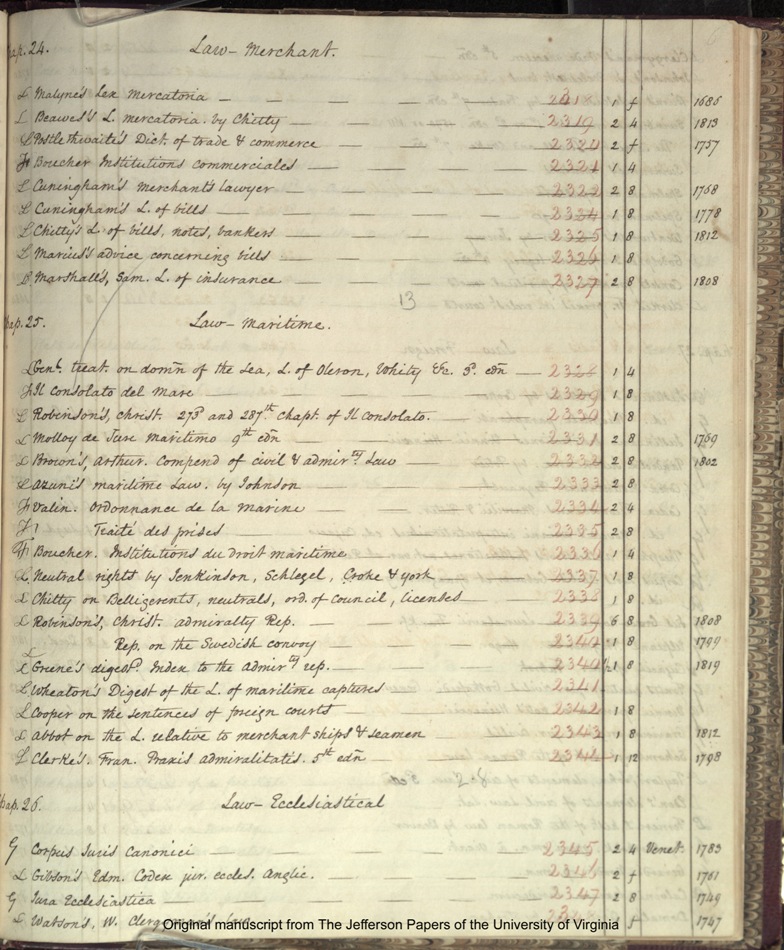 Chap. 24. Law-Merchant.
L Malyne's Lex mercatoria — 2318 1 f 1686
L Beawes's L. mercatoria. by Chitty — 2319 2 4 1813
L Postlethwaite's Dict. of trade & commerce — 2320 2 f 1757
Fr Boucher Institutions commerciales — 2321 1 4
L Cuningham's merchant's lawyer — 2322 2 8 1768
L Cuningham's L. of bills — 2324 1 8 1778
L Chitty's L. of bills, notes, bankers 2325 1 8 1812
L Maries's advice concerning bills — 2326 1 8
B Marshall's, Sam. L. of insurance — 2327 2 8 1808
13
Chap. 25. Law-Maritime.
L Genl. treat. on domn of the Sea, L. of Oleron, Whitby &c. 3d. edn — 2328 1 4
Fr Il consolato del mare — 2329 1 8
L Robinson's, Christ. 273d and 287th chapt. of Il Consolato. 2330 1 8
L Molloy de Jure Maritimo 9th edn — 2331 2 8 1769
L Brown's, Arthur. Compend of civil & admirty Law — 2332 2 8 1802
L Azuni's maritime Law. by Johnson — 2333 2 8
Fr Valin. Ordonnance de la Marine — 2334 2 4
Fr Traité des prises — 2335 2 8
Fr Boucher. Institutions du Droit maritime 2336 1 4
L Neutral rights by Jenkinson, Schlegel, Cooke & York 2337 1 8
L Chitty on Belligerents, neutrals, ord. of council, licenses 2338 1 8
L Robinson's, Christ. admiralty Rep. — 2339 6 8 1808
L Rep. on the Swedish convoy — 2340 1 8 1799
L Greene's digestd. Index to the Admirty rep. — 2340½ 1 8 1819
L Wheaton's Digest of the L. of maritime captures 2341
L Cooper on the sentences of foreign courts — 2342 1 8
L Abbot on the L. relative to merchant ships & seamen 2343 1 8 1812
L Clerke's. Fran. Praxis admiralitatis. 5th edn — 2344 1 12 1798
Chap. 26. Law-Ecclesiastical
G Corpus Juris Canonici — 2345 2 4 Venet. 1783
L Gibson's Edm. Codex jur. eccles. Anglic. — 2346 2 f 1761
G Jura Ecclesiastica — 2347 2 8 1749
L Watson's, W. Clergyman's law 1 f 1747
Original manuscript from The Jefferson Papers of the University of Virginia